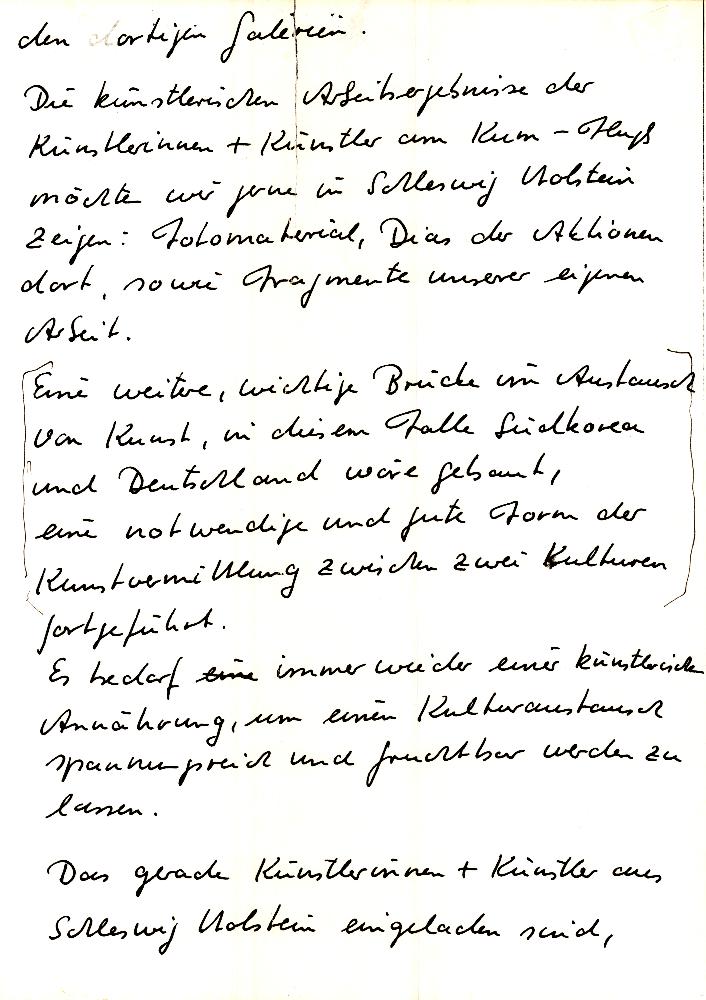 den dortigen Galerien.
Die künstlerischen Arbeitsergebnisse der
Künstlerinnen + Künstler am Kum-Fluß
möchten wir gerne in Schleswig Holstein
zeigen: Fotomaterial, Dias der Aktionen
dort, sowie Fragmente unserer eigenen
Arbeit.
Eine weitere, wichtige Brücke im Austausch
von Kunst, in diesem Falle Südkorea
und Deutschland wäre gebaut,
eine notwendige und gute Form der
Kunstvermittlung zwischen zwei Kulturen
fortgeführt.
Es bedarf eine immer wieder einer künstlerischen
Annährung, um einen Kulturaustausch
spannungsreich und fruchtbar werden zu
lassen.
Das gerade Künstlerinnen + Künstler aus
Schleswig Holstein eingeladen sind,